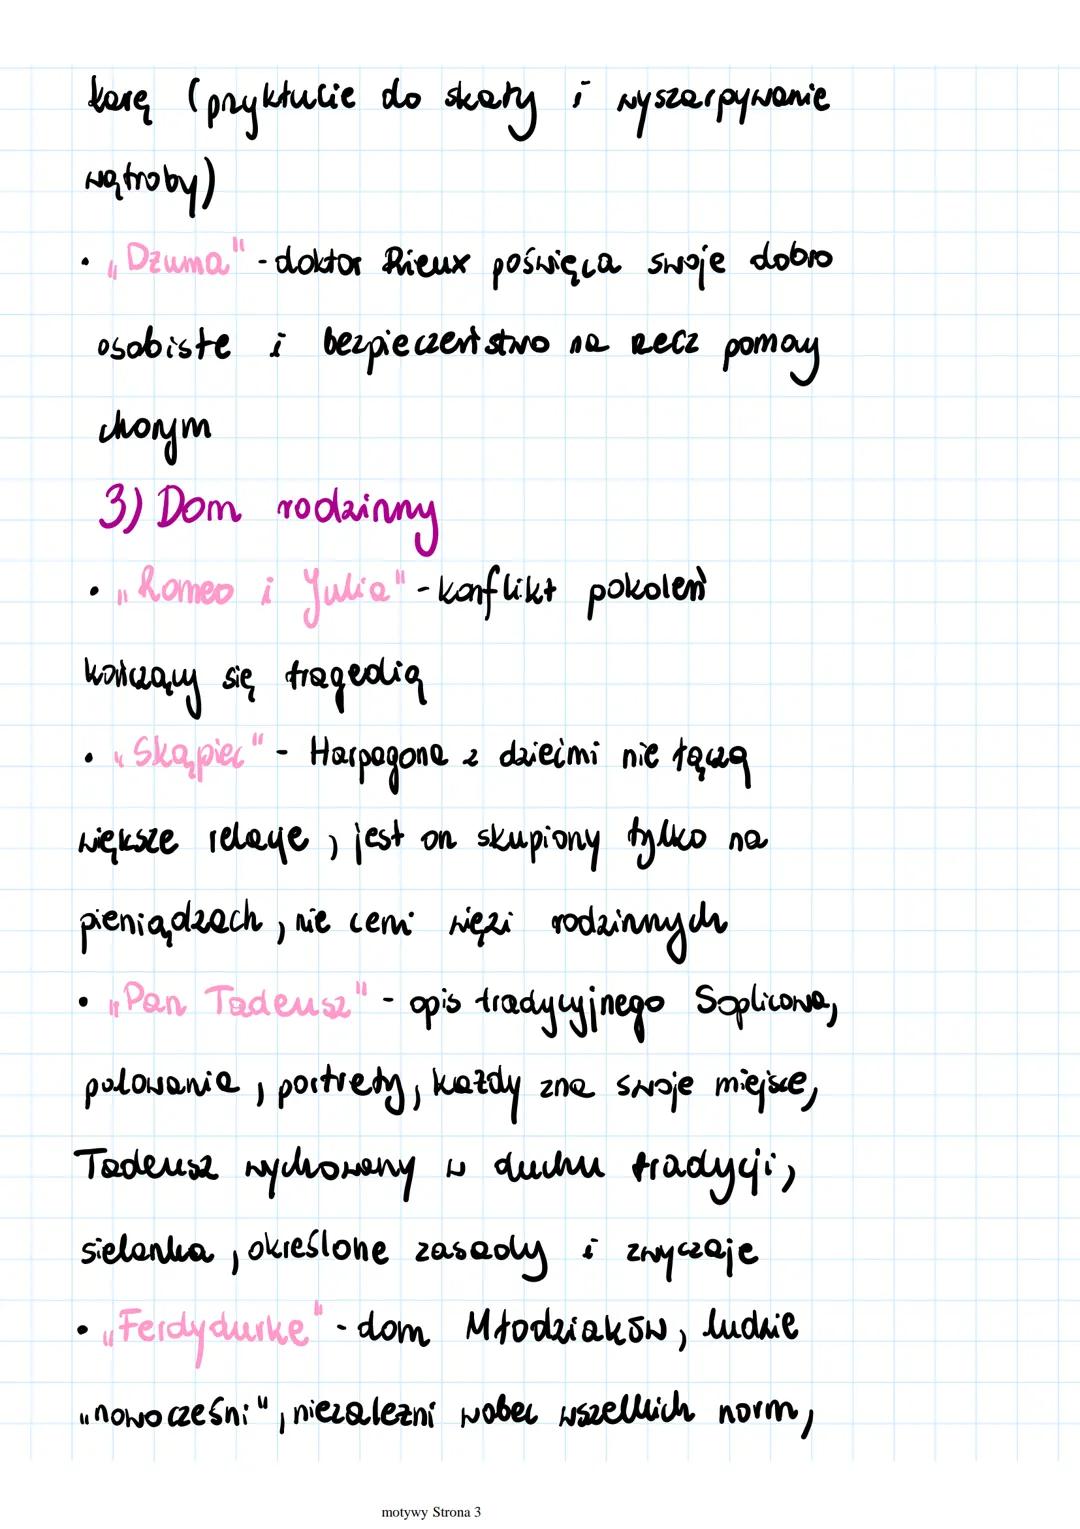 karę (przykłucie do skały i wyszarpywanie
wątroby)
• „Dżuma" - doktor Rieux poświęca swoje dobro
osobiste i bezpieczeństwo na rzecz pomocy
chorym
3) Dom rodzinny
• „Romeo i Julia" - konflikt pokoleń
kończący się tragedią
• „Skąpiec" - Harpagona z dziećmi nie łączą
większe relacje, jest on skupiony tylko na
pieniądzach, nie ceni więzi rodzinnych
• „Pan Tadeusz" - opis tradycyjnego Soplicowa,
polowania, portrety, każdy zna swoje miejsce,
Tadeusz wychowany w duchu tradycji,
sielanka, określone zasady i zwyczaje
• „Ferdydurke" - dom Młodziaków, ludzie
„nowocześni", niezależni wobec wszelkich norm,
motywy Strona 3